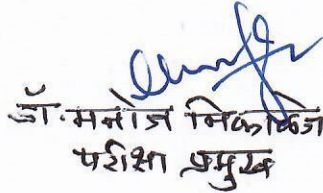 डॉ. मनोज निकाळजे
परीक्षा प्रमुख